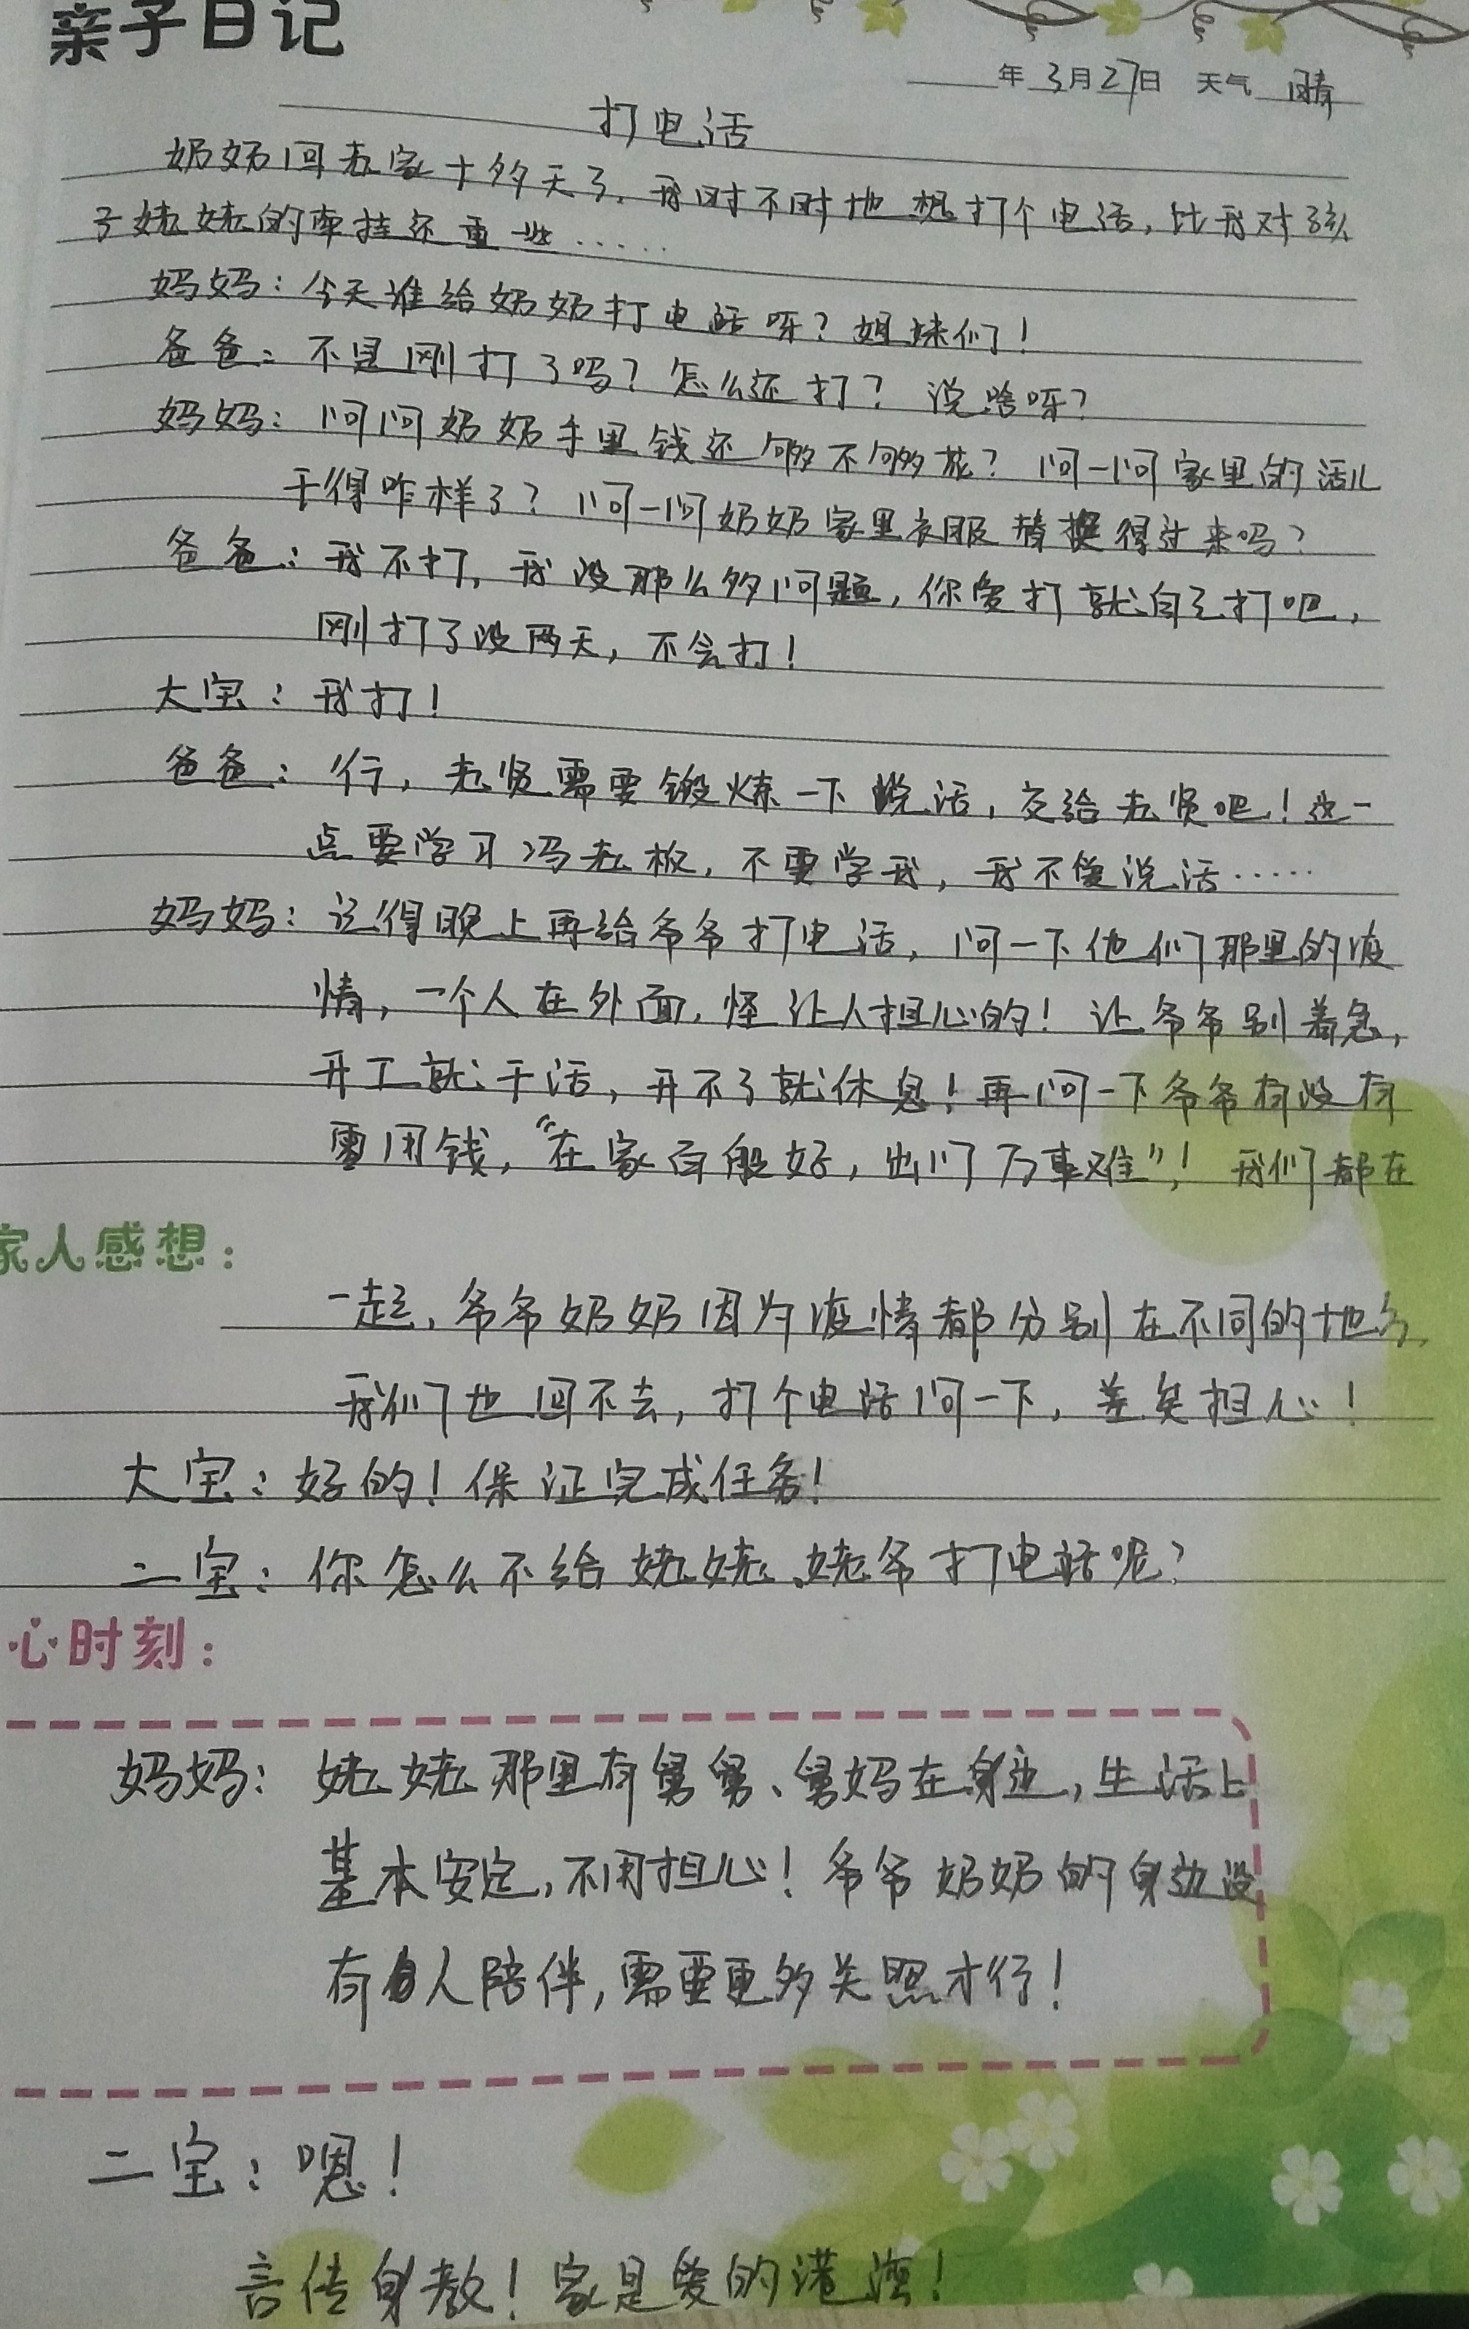 亲子日记
年 3月27日 天气 晴
打电话
奶奶回老家十多天了，我时不时地想打个电话，比我对孩
子姥姥的牵挂还重些……
妈妈：今天谁给奶奶打电话呀？姐妹们！
爸爸：不是刚打了吗？怎么还打？说啥呀？
妈妈：问问奶奶手里钱还够不够花？问一问家里的活儿
干得咋样了？问一问奶奶家里衣服替换得过来吗？
爸爸：我不打，我没那么多问题，你爱打就自己打吧，
刚打了没两天，不会打！
大宝：我打！
爸爸：行，老贤需要锻炼一下说话，交给老贤吧！这一
点要学习冯老板，不要学我，我不爱说话……
妈妈：记得晚上再给爷爷打电话，问一下他们那里的疫
情，一个人在外面，怪让人担心的！让爷爷别着急，
开工就干活，开不了就休息！再问一下爷爷有没有
要用钱，“在家百般好，出门万事难”！我们都在
家人感想：
一起，爷爷奶奶因为疫情都分别在不同的地方，
我们也回不去，打个电话问一下，差矣担心！
大宝：好的！保证完成任务！
二宝：你怎么不给姥姥、姥爷打电话呢？
心时刻：
妈妈：姥姥那里有舅舅、舅妈在身边，生活上
基本安定，不用担心！爷爷奶奶的身边没
有人陪伴，需要更多关照才行！
二宝：嗯！
言传身教！家是爱的港湾！